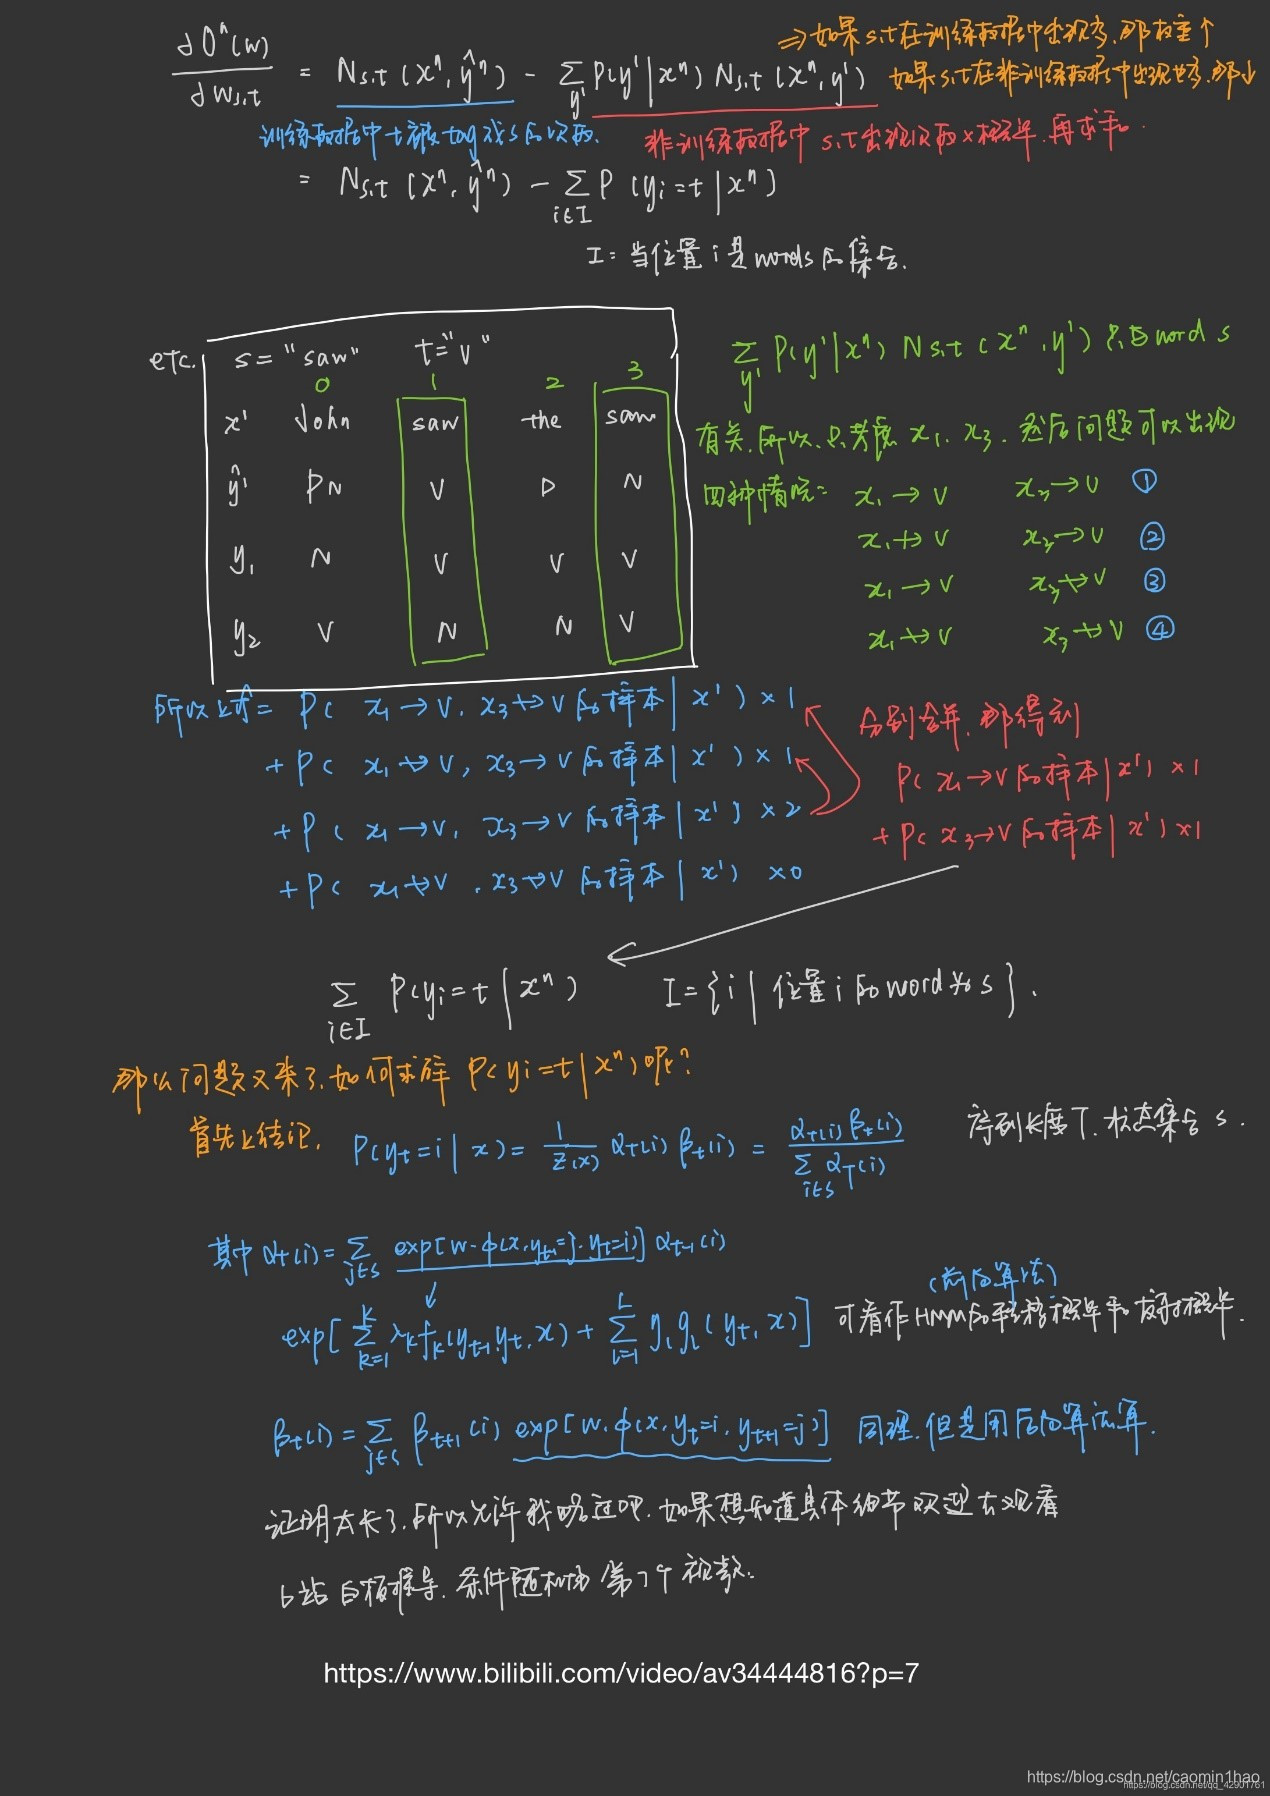 ∂O^n(w)/∂w_{s,t} = N_{s,t}(x^n, ŷ^n) - Σ_{y'} P(y'|x^n) N_{s,t}(x^n, y')
⇒如果s,t在训练数据中出现多,那权重↑
如果s,t在非训练数据中出现也多,那↓
训练数据中t被tag成s的次数.
非训练数据中 s,t出现次数×概率.再求和.
= N_{s,t}(x^n, ŷ^n) - Σ_{i∈I} P(y_i=t|x^n)
I=当位置i是words的集合.
etc. s="saw" t="V"
0 1 2 3
x' John saw the saw
ŷ' PN V D N
y_1 N V V V
y_2 V N N V
Σ_{y'} P(y'|x^n) N_{s,t}(x^n, y') 只与word s
有关,所以,只考虑 x_1, x_3. 然后问题可以出现
四种情况: x_1→V x_3→V ①
x_1↛V x_3→V ②
x_1→V x_3↛V ③
x_1↛V x_3↛V ④
所以上式= P( x_1→V, x_3↛V的样本|x')×1
+P( x_1↛V, x_3→V的样本|x')×1
+P( x_1→V, x_3→V的样本|x')×2
+P( x_1↛V, x_3↛V的样本|x') ×0
分别合并,那得到
P( x_1→V的样本|x')×1
+P( x_3→V的样本|x')×1
Σ_{i∈I} P(y_i=t|x^n) I={i|位置i的word为s}.
那么问题又来了,如何求解 P(y_i=t|x^n)呢?
首先上结论, P(y_t=i|x)= 1/Z(x) α_t(i) β_t(i) = α_t(i) β_t(i) / Σ_{i∈S} α_T(i)
序列长度T,状态集合 S.
其中 α_t(i)=Σ_{j∈S} exp[w·ϕ(x,y_{t-1}=j,y_t=i)] α_{t-1}(i)
(前向算法)
exp[Σ_{k=1}^{K} λ_k f_k(y_{t-1},y_t,x) + Σ_{l=1}^{L} η_l g_l(y_t,x)] 可看作HMM的转移概率和发射概率.
β_t(i)=Σ_{j∈S} β_{t+1}(i) exp[w·ϕ(x,y_t=i,y_{t+1}=j)] 同理,但是用后向算法算.
证明太长了,所以允许我略过吧.如果想知道具体细节欢迎去观看
b站 白板推导,条件随机场 第7个视频.
https://www.bilibili.com/video/av34444816?p=7
https://blog.csdn.net/caomin1hao
https://blog.csdn.net/qq_42901761